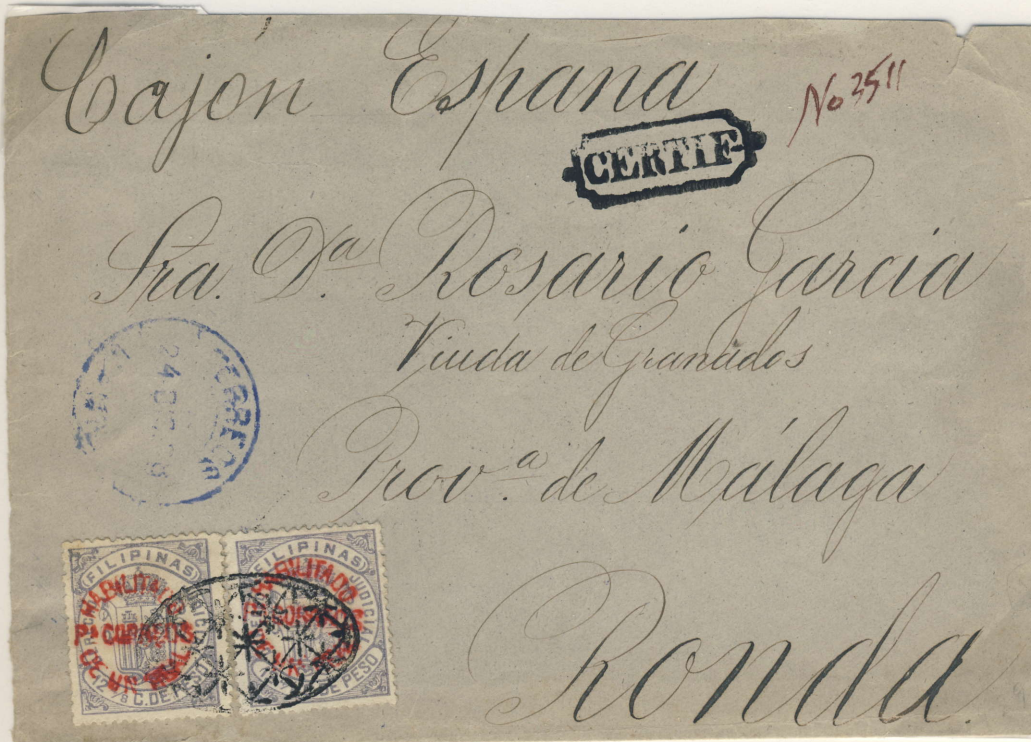 Cajón España
No 3511
CERTIF
Sra. Dª Rosario Garcia
Viuda de Granados
Provª de Málaga
Ronda.
CORREOS
24
FILIPINAS
HABILITADO
Pª CORREOS
DE UN REAL
C. DE PESO
FILIPINAS
JUDICIAL
HABILITADO
DE PESO